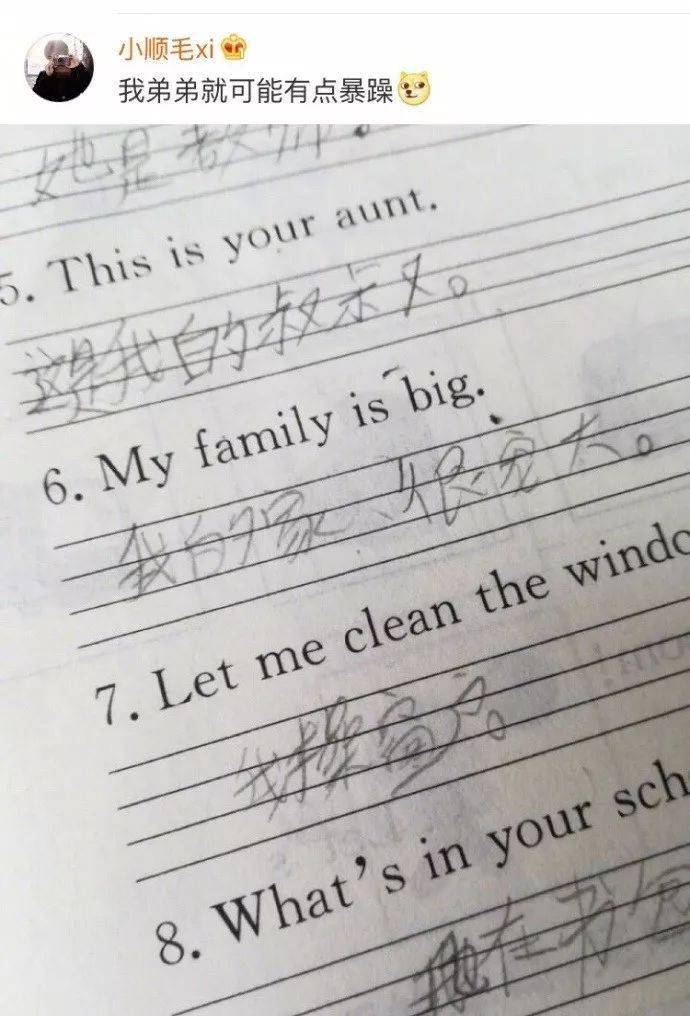 小顺毛xi
我弟弟就可能有点暴躁
她是教师。
5. This is your aunt.
这是我的
6. My family is big.
我的家很宠大。
7. Let me clean the windo
我操窗户。
8. What's in your sch
在书包